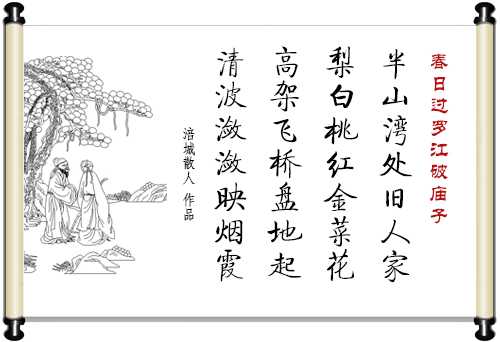 春日过罗江破庙子
半山湾处旧人家
梨白桃红金菜花
高架飞桥盘地起
清波潋潋映烟霞
涪城散人 作品